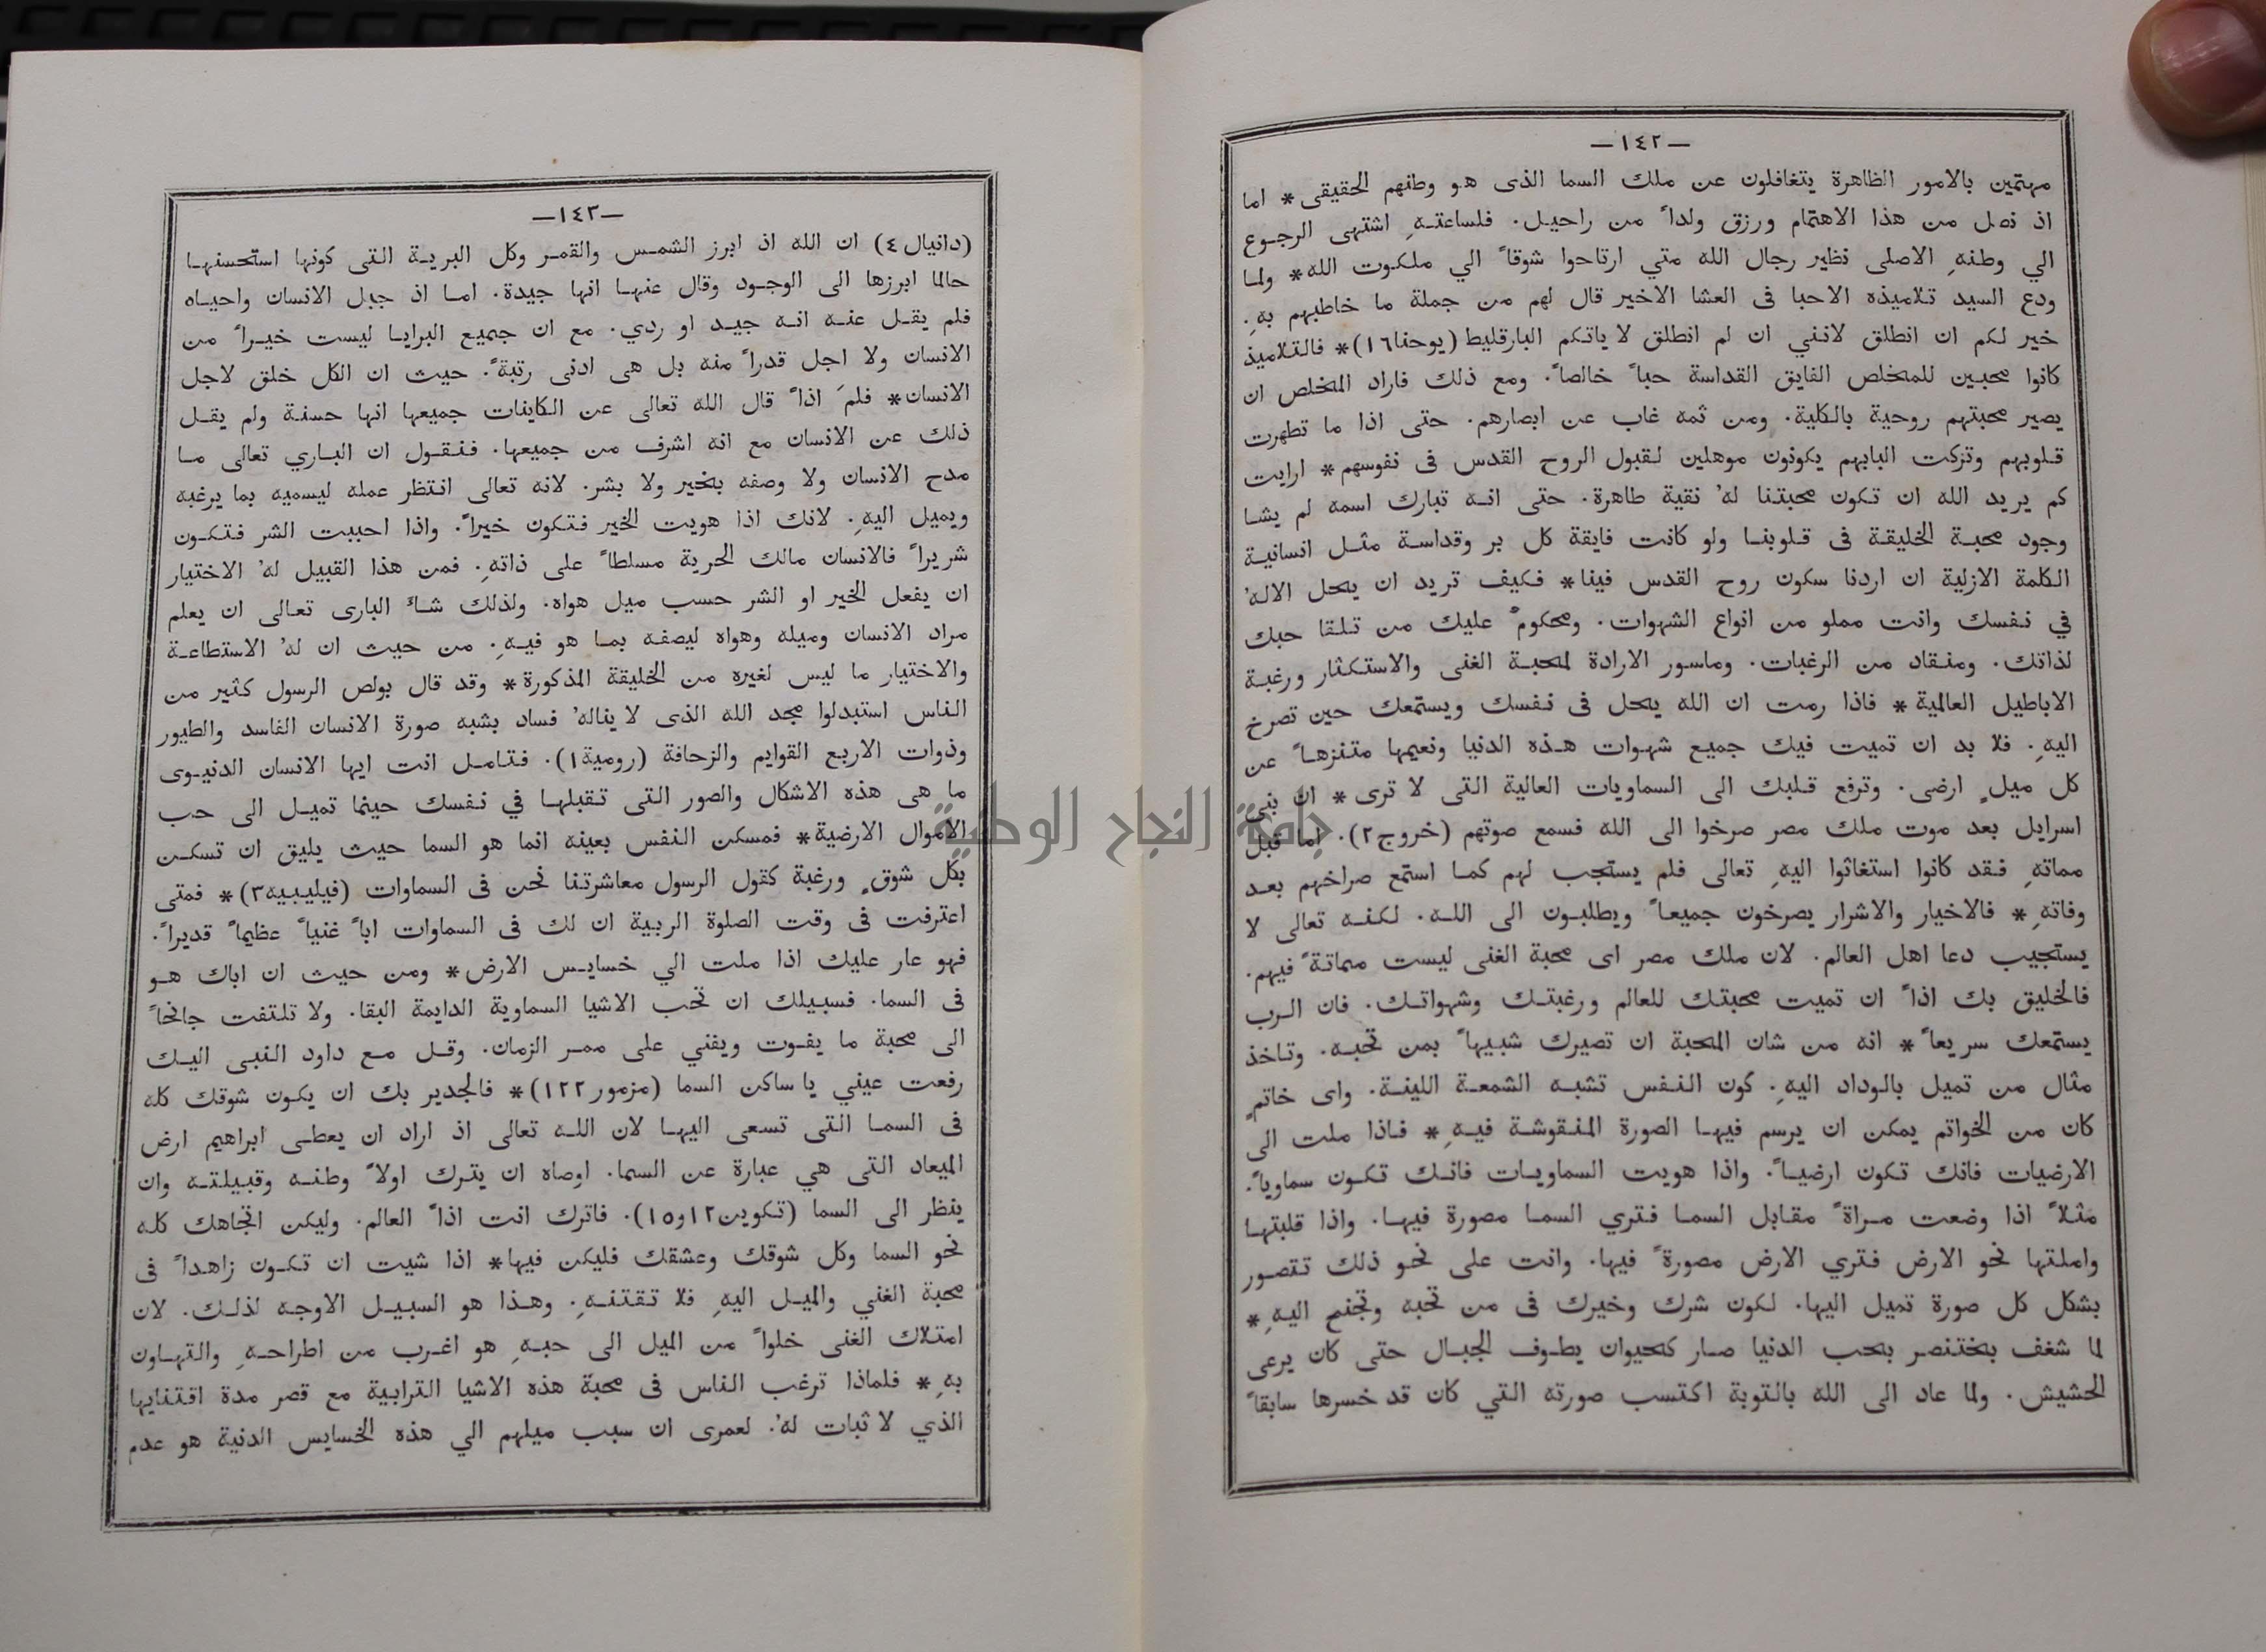 —١٤٢—
مهتمين بالامور الظاهرة يتغافلون عن ملك السما الذى هو وطنهم الحقيقى* اما
اذ نصل من هذا الاهتمام ورزق ولداً من راحيل. فلساعتهِ اشتهى الرجوع
الي وطنهِ الاصلى نظير رجال الله متي ارتاحوا شوقاً الي ملكوت الله* ولما
ودع السيد تلاميذه الاحبا فى العشا الاخير قال لهم من جملة ما خاطبهم بهِ.
خير لكم ان انطلق لانني ان لم انطلق لا ياتكم البارقليط (يوحنا١٦)* فالتلاميذ
كانوا محبين للمخلص الفايق القداسة حباً خالصاً. ومع ذلك فاراد المخلص ان
يصير محبتهم روحية بالكلية. ومن ثمه غاب عن ابصارهم. حتى اذا ما تطهرت
قلوبهم وتزكت البابهم يكونون موهلين لقبول الروح القدس فى نفوسهم* ارايت
كم يريد الله ان تكون محبتنا له' نقية طاهرة. حتى انه تبارك اسمه لم يشا
وجود محبة الخليقة فى قلوبنا ولو كانت فايقة كل بر وقداسة مثل انسانية
الكلمة الازلية ان اردنا سكون روح القدس فينا* فكيف تريد ان يحل الاله'
في نفسك وانت مملو من انواع الشهوات. ومحكومٌ عليك من تلقا حبك
لذاتك. ومنقاد من الرغبات. وماسور الارادة لمحبة الغنى والاستكثار ورغبة
الاباطيل العالمية* فاذا رمت ان الله يحل فى نفسك ويستمعك حين تصرخ
اليهِ. فلا بد ان تميت فيك جميع شهوات هذه الدنيا ونعيمها متنزهاً عن
كل ميلٍ ارضى. وترفع قلبك الى السماويات العالية التى لا ترى* ان بنى
اسرايل بعد موت ملك مصر صرخوا الى الله فسمع صوتهم (خروج٢). اما قبل
مماتهِ فقد كانوا استغاثوا اليهِ تعالى فلم يستجب لهم كما استمع صراخهم بعد
وفاتهِ* فالاخيار والاشرار يصرخون جميعاً ويطلبون الى الله. لكنه تعالى لا
يستجيب دعا اهل العالم. لان ملك مصر اى محبة الغنى ليست مماتةً فيهم.
فالخليق بك اذاً ان تميت محبتك للعالم ورغبتك وشهواتك. فان الرب
يستمعك سريعاً* انه من شان المحبة ان تصيرك شبيهاً بمن تحبه. وتاخذ
مثال من تميل بالوداد اليهِ. كون النفس تشبه الشمعة اللينة. واى خاتمٍ
كان من الخواتم يمكن ان يرسم فيها الصورة المنقوشة فيهِ* فاذا ملت الى
الارضيات فانك تكون ارضياً. واذا هويت السماويات فانك تكون سماوياً.
مثلاً اذا وضعت مراةً مقابل السما فتري السما مصورة فيها. واذا قلبتها
واملتها نحو الارض فتري الارض مصورةً فيها. وانت على نحو ذلك تتصور
بشكل كل صورة تميل اليها. لكون شرك وخيرك فى من تحبه وتجنح اليهِ*
لما شغف بختنصر بحب الدنيا صار كحيوان يطوف الجبال حتى كان يرعى
الحشيش. ولما عاد الى الله بالتوبة اكتسب صورته التي كان قد خسرها سابقاً
—١٤٣—
(دانيال٤) ان الله اذ ابرز الشمس والقمر وكل البرية التى كونها استحسنها
حالما ابرزها الى الوجود وقال عنها انها جيدة. اما اذ جبل الانسان واحياه
فلم يقل عنه انه جيد او ردي. مع ان جميع البرايا ليست خيراً من
الانسان ولا اجل قدراً منه بل هى ادنى رتبةً. حيث ان الكل خلق لاجل
الانسان* فلمَ اذاً قال الله تعالى عن الكاينات جميعها انها حسنة ولم يقل
ذلك عن الانسان مع انه اشرف من جميعها. فنقول ان الباري تعالى ما
مدح الانسان ولا وصفه بخير ولا بشر. لانه تعالى انتظر عمله ليسميه بما يرغبه
ويميل اليهِ. لانك اذا هويت الخير فتكون خيراً. واذا احببت الشر فتكون
شريراً فالانسان مالك الحرية مسلطاً على ذاتهِ. فمن هذا القبيل له' الاختيار
ان يفعل الخير او الشر حسب ميل هواه. ولذلك شاء البارى تعالى ان يعلم
مراد الانسان وميله وهواه ليصفه بما هو فيهِ. من حيث ان له' الاستطاعة
والاختيار ما ليس لغيره من الخليقة المذكورة* وقد قال بولص الرسول كثير من
الناس استبدلوا مجد الله الذى لا يناله' فساد بشبه صورة الانسان الفاسد والطيور
وذوات الاربع القوايم والزحافة (رومية١). فتامل انت ايها الانسان الدنيوى
ما هى هذه الاشكال والصور التى تقبلها في نفسك حينما تميل الى حب
الاموال الارضية* فمسكن النفس بعينه انما هو السما حيث يليق ان تسكن
بكل شوقٍ ورغبة كقول الرسول معاشرتنا نحن فى السماوات (فيليبيه٣)* فمتى
اعترفت فى وقت الصلوة الربية ان لك فى السماوات اباً غنياً عظيماً قديراً.
فهو عار عليك اذا ملت الي خسايس الارض* ومن حيث ان اباك هو
فى السما. فسبيلك ان تحب الاشيا السماوية الدايمة البقا. ولا تلتفت جانحاً
الى محبة ما يفوت ويفني على ممر الزمان. وقل مع داود النبى اليك
رفعت عيني يا ساكن السما (مزمور١٢٢)* فالجدير بك ان يكون شوقك كله
فى السما التى تسعى اليها لان الله تعالى اذ اراد ان يعطى ابراهيم ارض
الميعاد التى هي عبارة عن السما. اوصاه ان يترك اولاً وطنه وقبيلته وان
ينظر الى السما (تكوين١٢و١٥). فاترك انت اذاً العالم. وليكن اتجاهك كله
نحو السما وكل شوقك وعشقك فليكن فيها* اذا شيت ان تكون زاهداً فى
محبة الغني والميل اليهِ فلا تقتنهِ. وهذا هو السبيل الاوجه لذلك. لان
امتلاك الغنى خلواً من الميل الى حبهِ هو اغرب من اطراحهِ والتهاون
بهِ* فلماذا ترغب الناس فى محبة هذه الاشيا الترابية مع قصر مدة اقتنايها
الذي لا ثبات له'. لعمرى ان سبب ميلهم الي هذه الخسايس الدنية هو عدم
جامعة النجاح الوطنية